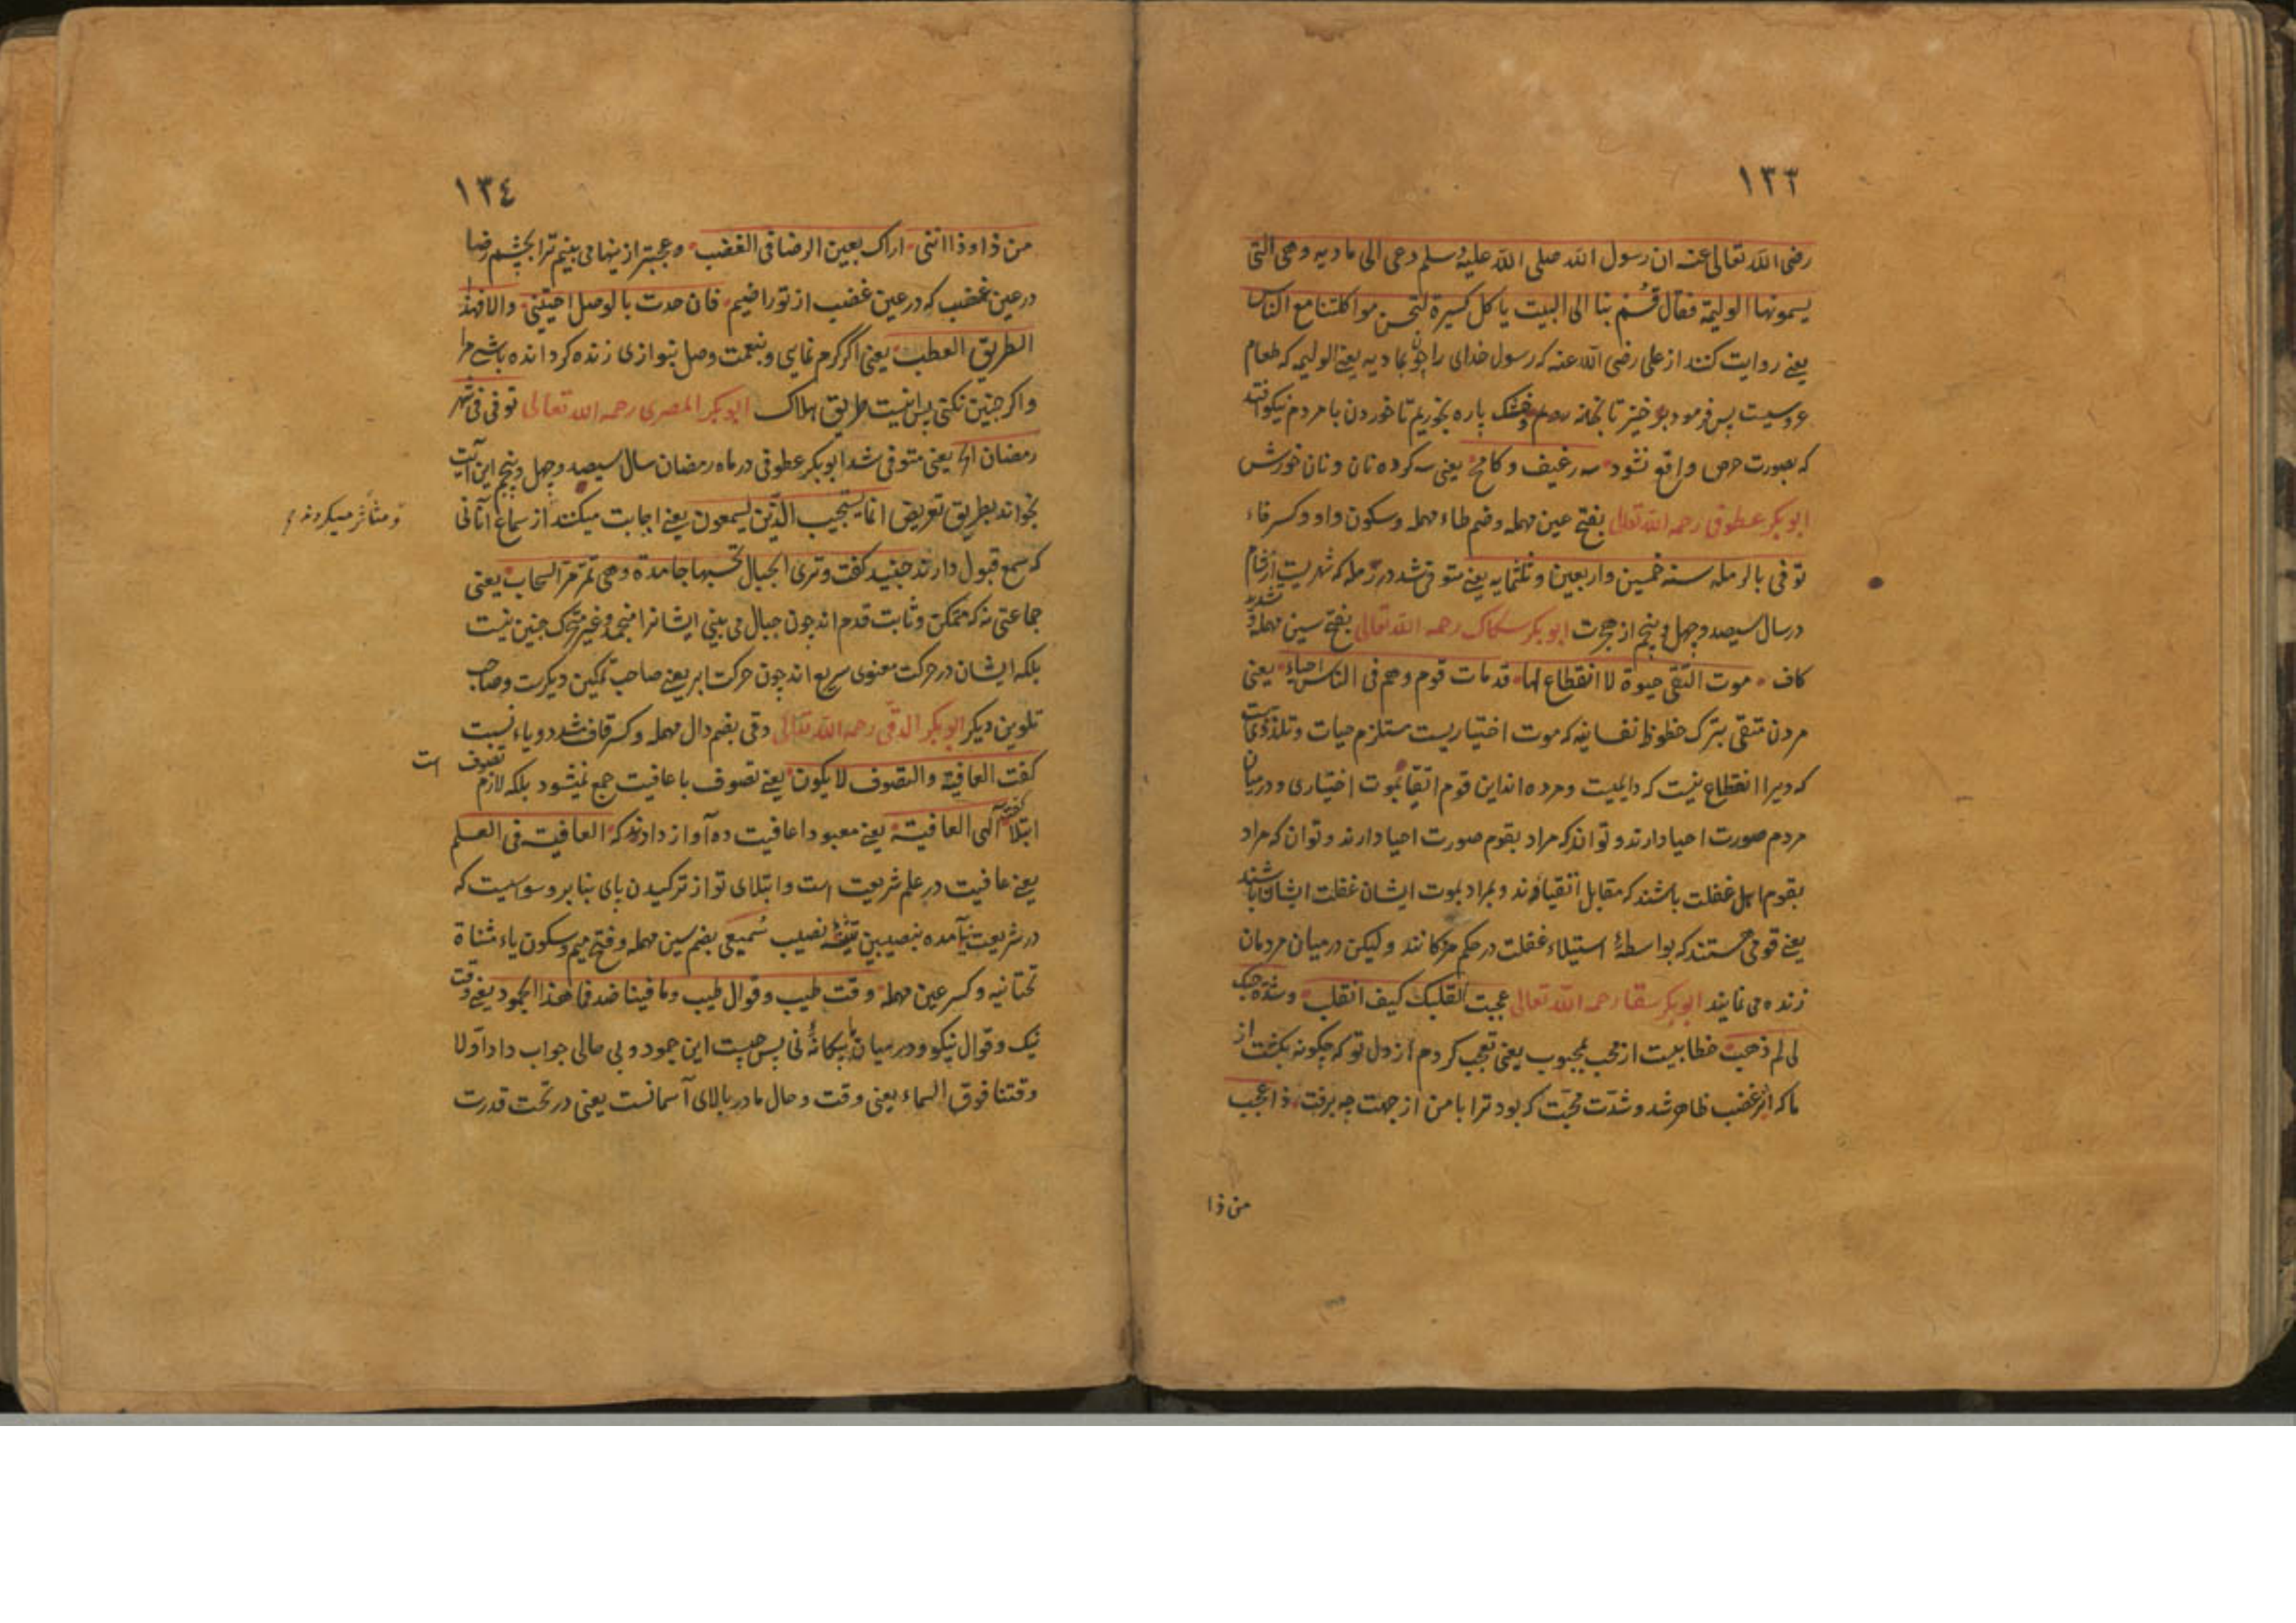 ١٣٣
رضی الله تعالی عنه ان رسول الله صلی الله علیه وسلم دعی الی مادبه وهی التی
یسمونها الولیمة فقال قُسم بنا الی البیت یا کل کسیرة لتحسن مواکلتنا مع الناس
یعنی روایت کنند از علی رضی الله عنه که رسول خدای را چون بمادبه یعنی الولیمه که طعام
عروسیست پس فرمود برخیز تا بخانه رویم وخشک پاره بخوریم تا خوردن با مردم نیکو افتد
که بصورت حرص واقع نشود سه رغیف و کامخ یعنی سه کرده نان و نان خورش
ابو بکر عطوفی رحمه الله تعالی بفتح عین مهمله وضم طاء مهمله وسکون واو وکسر فاء
توفی بالرمله سنه خمسین واربعین وثلثمایه یعنی متوفی شد در رمله که شهریست از شام
در سال سیصد وچهل وپنج از هجرت ابو بکر سکاک رحمه الله تعالی بفتح سین مهمله وتشدید
کاف موت التقی حیوة لا انقطاع لها قد مات قوم وهم فی الناس احیاء یعنی
مردن متقی بترک حظوظ نفسانیه که موت اختیاریست مستلزم حیات وتلذذی است
که ویرا انقطاع نیست که دایمیست ومرده اند این قوم اتقیا بموت اختیاری و در میان
مردم صورت احیا دارند وتواند که مراد بقوم صورت احیا دارند وتوان که مراد
بقوم اهل غفلت باشند که مقابل اتقیااند ومراد بموت ایشان غفلت ایشان باشند
یعنی قومی هستند که بواسطهٔ استیلاء غفلت در حکم مردکانند ولیکن در میان مردمان
زنده می نمایند ابو بکر سقا رحمه الله تعالی عجبت لقلبک کیف انقلب وشدة حبک
لی لم ذهب خطابیست از محب بمحبوب یعنی تعجب کردم از دل تو که چکونه بکشت از
ما که اثر غضب ظاهر شد وشدّت محبّت که بود ترا با من از جهت چه برفت ذا عجب
من ذا
١٣٤
من ذا وذا اننی اراک بعین الرضا فی الغضب وعجبتر از ینها می بینم ترا بچشم رضا
در عین غضب که در عین غضب از تو راضیم فان جدت بالوصل احییتنی والا فهذا
الطریق العطب یعنی اگر کرم نمایی وبنعمت وصل بنوازی زنده کردانده باشی مرا
واکر چنین نکنی پس اینست طریق هلاک ابو بکر المصری رحمه الله تعالی توفی فی شهر
رمضان یعنی متوفی شد ابو بکر عطوفی در ماه رمضان سال سیصد وچهل وپنج این آیت
بخواند بطریق تعریض انما یستجیب الذین یسمعون یعنی اجابت میکنند از سماع آنانی
ومتأثر میکردند
که سمع قبول دارند جنید کفت وتری الجبال تحسبها جامدة وهی تمرّ مرّ السحاب یعنی
جماعتی نه که متمکن وثابت قدم اند چون جبال می بینی ایشانرا منجمد وغیر متحرک چنین نیست
بلکه ایشان در حرکت معنوی سریع اند چون حرکت ابر یعنی صاحب تمکین دیکرست وصاحب
تلوین دیکر ابو بکر الدقی رحمه الله تعالی دقی بضم دال مهمله وکسر قاف مشدد ویاء نسبت
کفت العافیه والتصوف لا یکون یعنی تصوف با عافیت جمع نمیشود بلکه لازم تصوف است
ابتلا کفت الهی العافیة یعنی معبودا عافیت ده آواز دادند که العافیت فی العلم
یعنی عافیت در علم شریعت است وابتلای تو از ترکیدن پای بنا بر وسواسیست که
در شریعت نیامده نصیب سُمیعی بضم سین مهمله وفتح میم وسکون یاء مثناة
تحتانیه وکسر عین مهمله وقت طیب وقوال طیب وما فینا ضد فما هذا الجمود یعنی وقت
نیک وقوال نیکو ودر میان ما بیکانهٔ نی پس چیست این جمود وبی حالی جواب داد اولا
وقتنا فوق السماء یعنی وقت وحال ما در بالای آسمانست یعنی در تحت قدرت